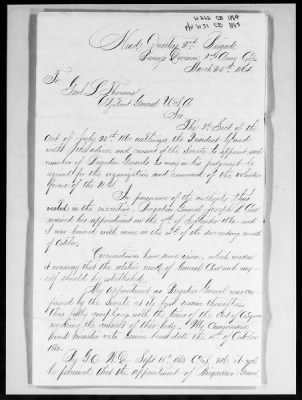 Head Quarters 2nd Brigade
Division 2nd Army Corps
March 24th 1864
To
Genl L Thomas
Adjutant General U.S.A
Sir
The 3d Sect of the
Act of July 22d 1861 authorizes the President by and
with the advice and consent of the Senate to appoint such
number of Brigadier Generals as may in his judgment be
required for the organization and command of the volunteer
forces of the U.S.
In pursuance of the authority thus
vested in the executive, Brigadier General Joseph
received his appointment on the of September 1862 and
I was honored with mine on the 2d of the succeeding month
of October.
Circumstances have since arisen, which makes
it necessary that the relative rank of General and my-
self should be established.
My appointment as Brigadier General was con-
firmed by the Senate at its first session thereafter
thus fully complying with the terms of the Act of Congress
requiring the consent of that body. My Commission
and bears date the of October
1862.
By G.O. W.D. Sept 18th 1862 it will
be perceived that the appointment of Brigadier General